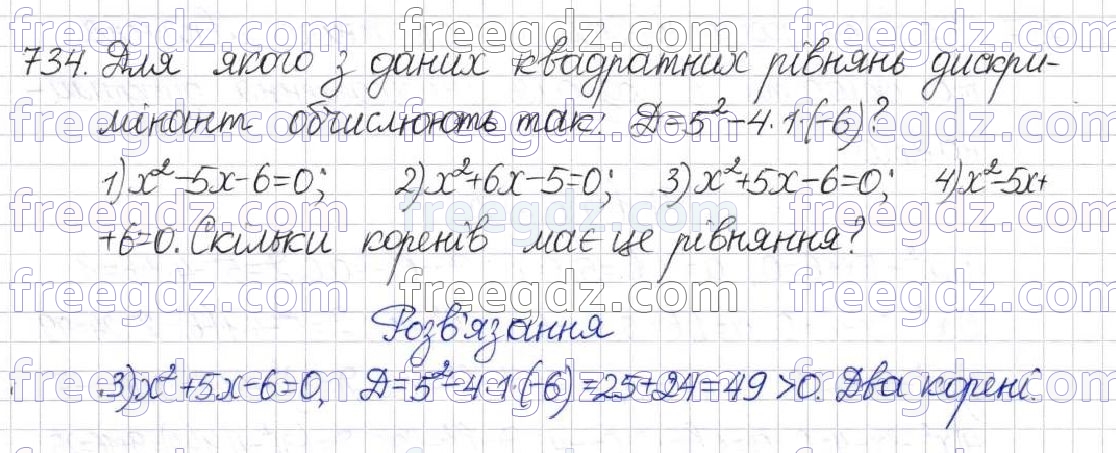 734. Для якого з даних квадратних рівнянь дискри-
мінант обчислюють так: D=5²-4·1·(-6)?
1) x²-5x-6=0; 2) x²+6x-5=0; 3) x²+5x-6=0; 4) x²-5x+
+6=0. Скільки коренів має це рівняння?
Розв'язання
3) x²+5x-6=0, D=5²-4·1·(-6)=25+24=49>0. Два корені.
freegdz.com